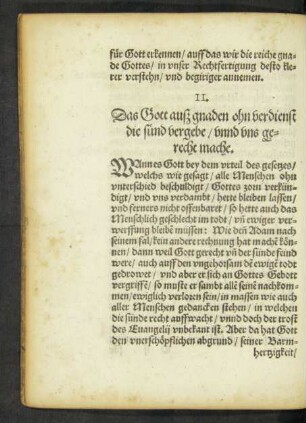 für Gott erkennen/ auff das wir die reiche gna-
de Gottes/ in vnser Rechtfertigung desto kle-
rer verstehn/ vnd begiriger annemen.
II.
Das Gott auß gnaden ohn verdienst
die sünd vergebe/ vnnd vns ge-
recht mache.
WAnn es Gott bey dem vrteil des gesetzes/
welchs wie gesagt/ alle Menschen ohn
vnterschied beschuldigt/ Gottes zorn verkün-
digt/ vnd vns verdambt/ hette bleiben lassen/
vnd ferners nicht offenbaret/ so hette auch das
Menschlich geschlecht im todt/ vñ ewiger ver-
werffung bleibē müssen: Wie deñ Adam nach
seinem fal/ kein andere rechnung hat machē kön-
nen/ dann weil Gott gerecht vñ der sünde feind
were/ auch auff den vngehorsam dē ewigē todt
gedrowet/ vnd aber er sich an Gottes Gebott
vergriffē/ so muste er sambt allē seinē nachkom-
men/ ewiglich verloren sein/ in massen wie auch
aller Menschen gedancken stehen/ in welchen
die sünde recht auffwacht/ vnnd doch der trost
des Euangelij vnbekant ist. Aber da hat Gott
den vnerschöpflichen abgrund/ seiner Barm-
hertzigkeit/